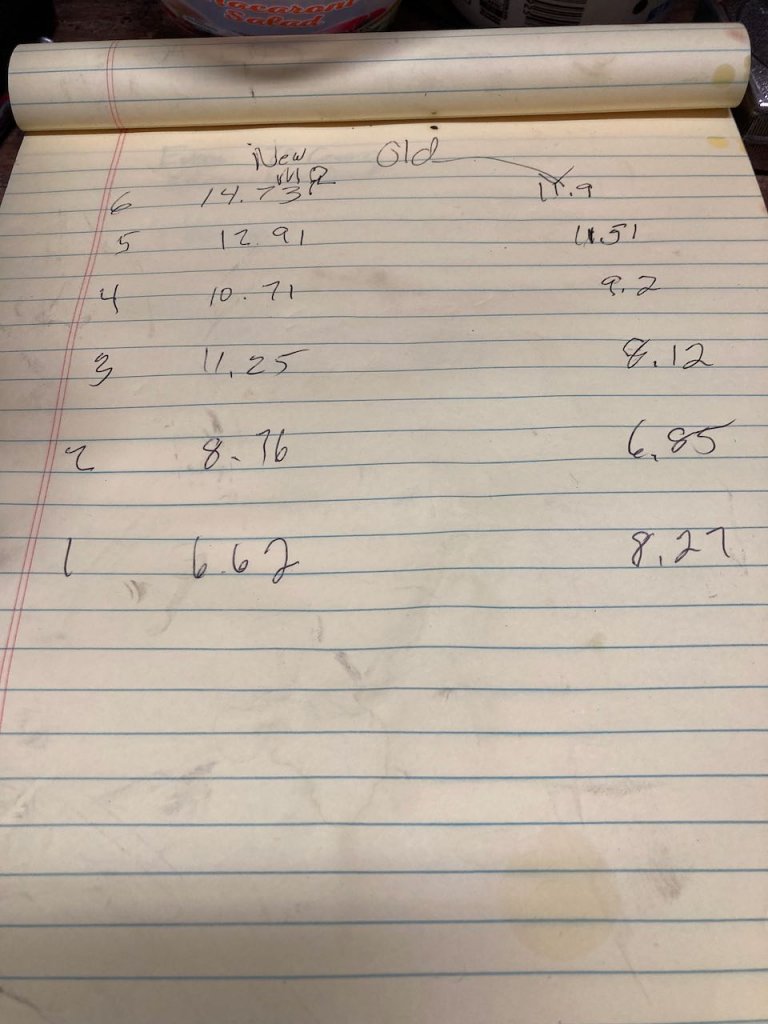 Macaroni
Salad
New Old
MΩ
6 14.73 11.9
5 12.91 11.51
4 10.71 9.2
3 11.25 8.12
2 8.76 6.85
1 6.62 8.27